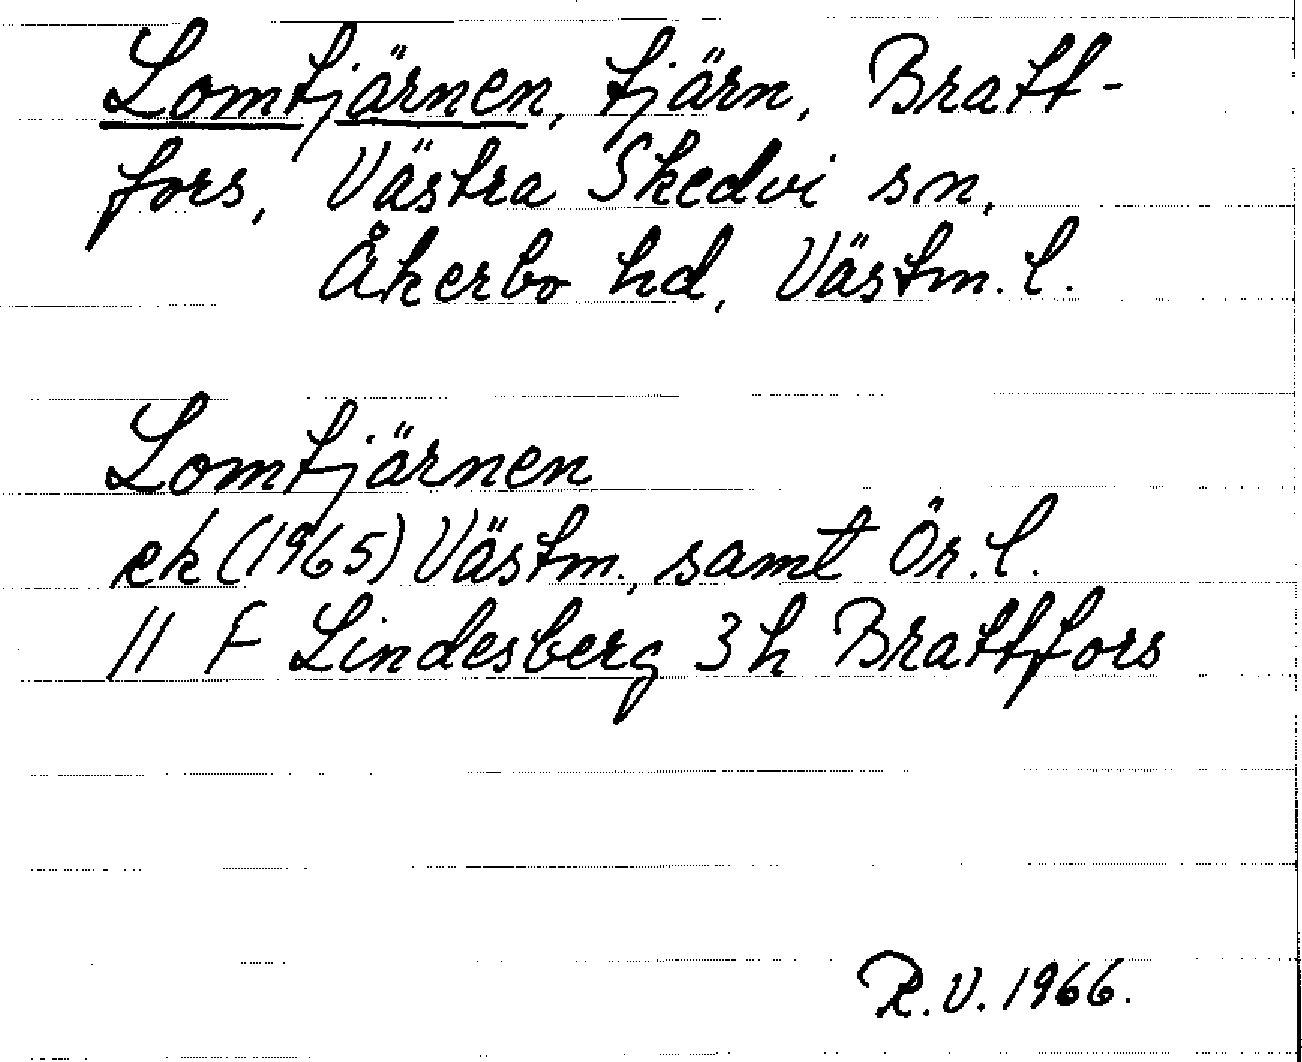 Lomtjärnen, tjärn, Bratt-
fors, Västra Skedvi sn,
Åkerbo hd, Västm. l.
Lomtjärnen
ek (1965) Västm., samt Ör. l.
11 F Lindesberg 3 h Brattfors
R.V. 1966.